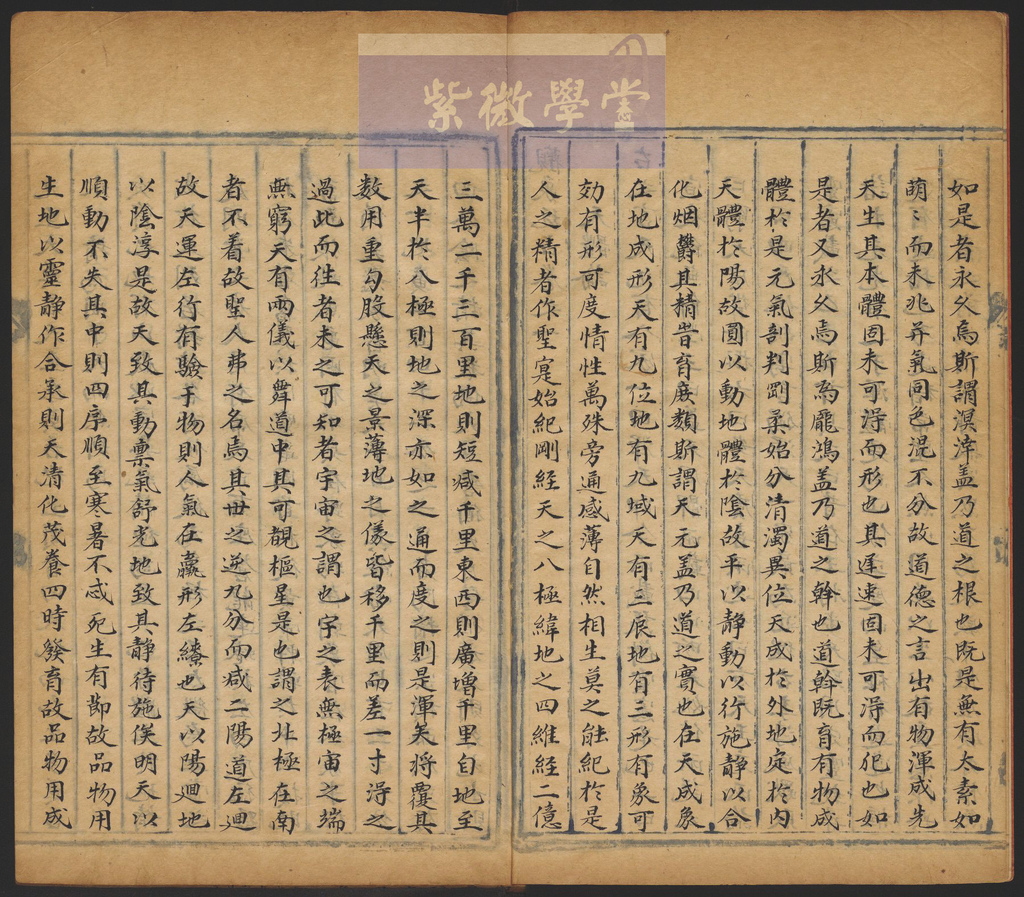 紫微學堂
如是者永久焉斯謂溟涬盖乃道之根也既是無有太素如
萌〻而未兆并氣同色混不分故道德之言出有物渾成先
天生其本體固未可淂而形也其遅速固未可淂而犯也如
是者又永久焉斯為龎鴻盖乃道之幹也道幹既育有物成
體於是元氣剖判剛柔始分清濁異位天成於外地定於内
天體於陽故圓以動地體於陰故平以静動以行施静以合
化烟欝其精旹育庻類斯謂天元盖乃道之實也在天成象
在地成形天有九位地有九域天有三辰地有三形有象可
効有形可度情性萬殊旁通感薄自然相生莫之能紀於是
人之精者作聖寔始紀剛經天之八極緯地之四維経二億
三萬二千三百里地則短减千里東西則廣增千里自地至
天半於八極則地之深亦如之通而度之則是渾矣將覆其
数用重勾股懸天之景薄地之儀皆移千里而差一寸淂之
過此而徃者未之可知者宇宙之謂也宇之表無極宙之端
無窮天有兩儀以舞道中其可覩樞星是也謂之北極在南
者不着故聖人弗之名焉其丗之逆九分而减二陽道左迴
故天運左行有驗于物則人氣在羸形左繢也天以陽迴地
以陰淳是故天致其動禀氣舒光地致其静待施俟明天以
順動不失其中則四序順至寒暑不忒死生有節故品物用
生地以靈静作合承則天清化茂養四時發育故品物用成